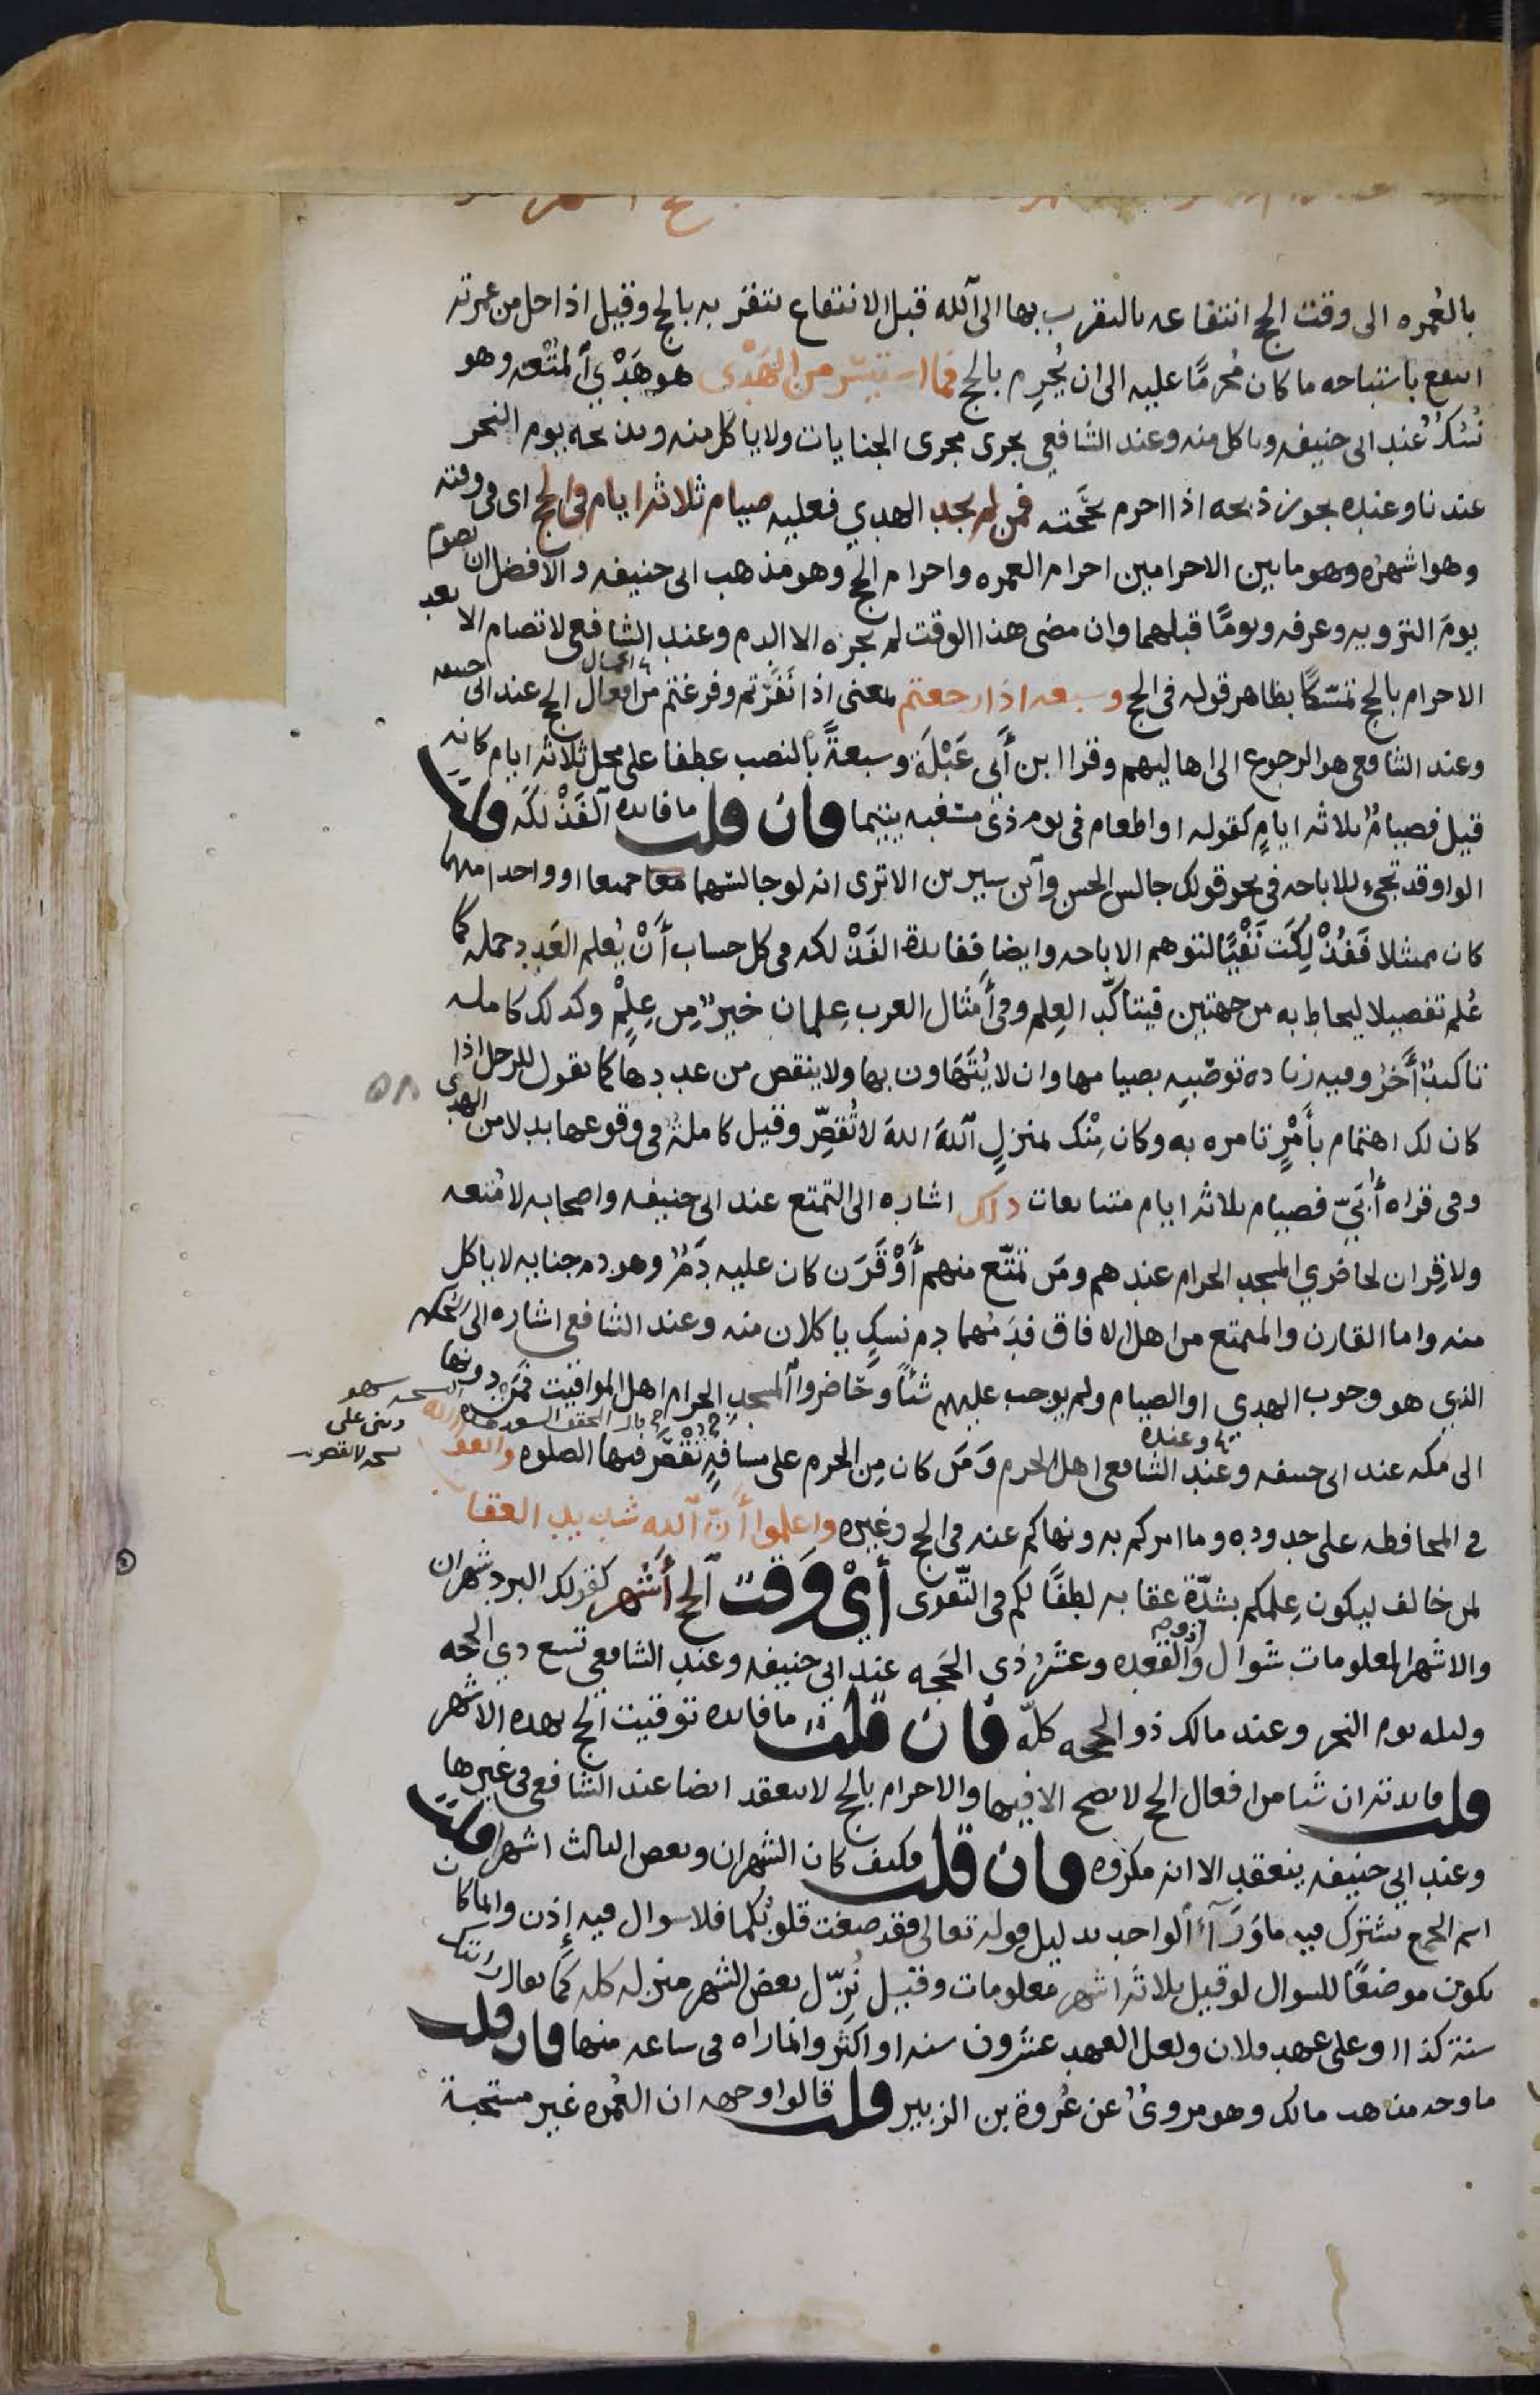 بالعُمره الى وقت الحج انتفاعه بالتقرب بها الى الله قبل الانتفاع بتقربه بالحج وقيل اذا حل من عمرته
انتفع باستباحه ما كان مُحرمًا عليه الى ان يُحرِم بالحج فما استيسر من الهَدْى هو هَدْيُ المُتْعه وهو
نُسُكٌ عند ابى حنيفه وياكل منه وعند الشافعي يجرى مجرى الجنايات ولا ياكل منه ويذبحه يوم النحر
عندنا وعنده يجوز ذبحه اذا احرم بحَجته فمن لم يجد الهدي فعليه صيام ثلاثة ايام في الحج اى فى وقته
وهو اشهره وهو ما بين الاحرامين احرام العمره واحرام الحج وهو مذهب ابى حنيفه والافضل ان يصوم
يومَ الترويه وعرفه ويومًا قبلهما وان مضى هذا الوقت لم يجزه الا الدم وعند الشافعى لا تصام الا بعد
الاحرام بالحج تمسّكًا بظاهر قوله فى الحج وسبعه اذا رجعتم بمعنى اذا نَفَرتم وفرغتم من افعال الحج عند ابى حنيفه
وعند الشافعى هو الرجوع الى اهاليهم وقرا ابن أبى عَبْلَة وسبعةً بالنصب عطفا على محل ثلاثة ايام كانه
قيل فصيامُ ثلاثه ايامٍ كقوله او اطعام فى يوم ذى مسغبه يتيما فان قلت ما فايده الفَذْلكه قلت
الواو قد تجىء للاباحه فى نحو قولك جالس الحسن وابن سيرين الا ترى انه لو جالسهما معا جميعا او واحدا منهما
كان ممتثلا فَفُذْلِكَت نَفْيًا لتوهم الاباحه وايضا ففايدة الفَذْلكه فى كل حساب أَنْ يُعلم العَدد جمله كما
عُلم تفصيلا ليحاط به من جهتين فيتاكّد العِلم وفى أمثال العرب عِلمان خيرٌ مِن عِلمٍ وكذلك كامله
تاكيدٌ أخرُ وفيه زياده توصّيه بصيامها وان لا يُتَهَاون بها ولا ينقص من عددها كما تقول للرجل اذا
كان لك اهتمام بأَمْرٍ تامره به وكان مِنْك بمنزلٍ اللهَ اللهَ لا تُقصِّر وقيل كاملةٌ فى وقوعها بدلا من الهدى
وفى قراه أُبَيّ فصيام ثلاثه ايام متتابعات ذلك اشاره الى التمتع عند ابى حنيفه واصحابه لا مُتعه
ولا قِران لحاضري المسجد الحرام عندهم ومَن تمتّع منهم أَوْ قَرَن كان عليه دَمٌ وهو دم جنايه لا ياكل
منه واما القارن والمتمتع من اهل الافاق فدَمُهما دم نسكٍ ياكلان منه وعند الشافعى اشاره الى الحكم
الذي هو وجوب الهدي او الصيام ولم يوجب عليهم شئًا وحَاضروا المسجدِ الحرام اهل المواقيت فمَن دونها
الى مكه عند ابى حنيفه وعند الشافعى اهل الحرم وَمَن كان مِن الحرم على مسافةٍ تُقْصَر فيها الصلوه واتقوا الله
في المحافظه على حدوده وما امركم به ونهاكم عنه فى الحج وغيره واعلموا أَنّ الله شديد العقاب
لمن خالف ليكون عِلمكم بشدّة عقابه لطفًا لكم فى التّقوى أيْ وَقت الحج أشهر كقولك البرد شهران
والاشهر المعلومات شوال وذو القعده وعشرُ ذى الحَجه عند ابى حنيفه وعند الشافعي تسع ذي الحجه
وليله يوم النحر وعند مالك ذو الحجه كلّه فان قلت ما فايده توقيت الحج بهذه الاشهر
قلت فايدته ان شيا من افعال الحج لا يصح الا فيها والاحرام بالحج لا ينعقد ايضا عند الشافعى فى غيرها
وعند ابي حنيفه ينعقد الا انه مكروه فان قلت فكيف كان الشهران وبعض الثالث اشهرا قلت
اسم الجمع يشترك فيه ماوَرَآءَ الواحد بدليل قوله تعالى فقد صغت قلوبُكما فلا سوال فيه إذن وانما كان
يكون موضعًا للسوال لو قيل ثلاثه اشهر معلومات وقيل نُزّل بعض الشهر منزله كله كما يقال رايتك
سنة كذا او على عهد فلان ولعل العهد عشرون سنه او اكثر وانما راه فى ساعه منها فان قلت
ما وجه مذهب مالك وهو مروىٌ عن عُروة بن الزبير قلت قالوا وجهه ان العُمره غير مستحبة